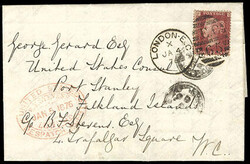 George Gerard Esq
United States Consul
Port Stanley
Falkland Islands
C/o B. F. Stevens, Esq
4 Trafalgar Square W.C.
LONDON-E.C
X
JA
7